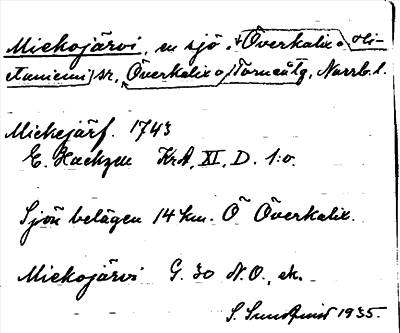 Miekojärvi, en sjö, Överkalix o Hi-
etaniemi sr, Överkalix o Torneå tg, Norrb. l.
Miekejärf. 1743
E. Hackzen KrA, XI, D. 1:o.
Sjön belägen 14 km. Ö Överkalix.
Miekojärvi G. 30 N.O., ek.
S. Sundqvist 1935.